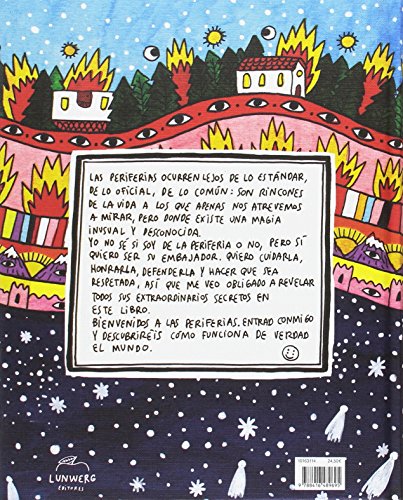 LAS PERIFERIAS OCURREN LEJOS DE LO ESTÁNDAR,
DE LO OFICIAL, DE LO COMÚN: SON RINCONES
DE LA VIDA A LOS QUE APENAS NOS ATREVEMOS
A MIRAR, PERO DONDE EXISTE UNA MAGIA
INUSUAL Y DESCONOCIDA.
YO NO SÉ SI SOY DE LA PERIFERIA O NO, PERO SÍ
QUIERO SER SU EMBAJADOR. QUIERO CUIDARLA,
HONRARLA, DEFENDERLA Y HACER QUE SEA
RESPETADA, ASÍ QUE ME VEO OBLIGADO A REVELAR
TODOS SUS EXTRAORDINARIOS SECRETOS EN
ESTE LIBRO.
BIENVENIDOS A LAS PERIFERIAS. ENTRAD CONMIGO
Y DESCUBRIRÉIS CÓMO FUNCIONA DE VERDAD
EL MUNDO.
LUNWERG
EDITORES
10163114
24.50€
9788416489695